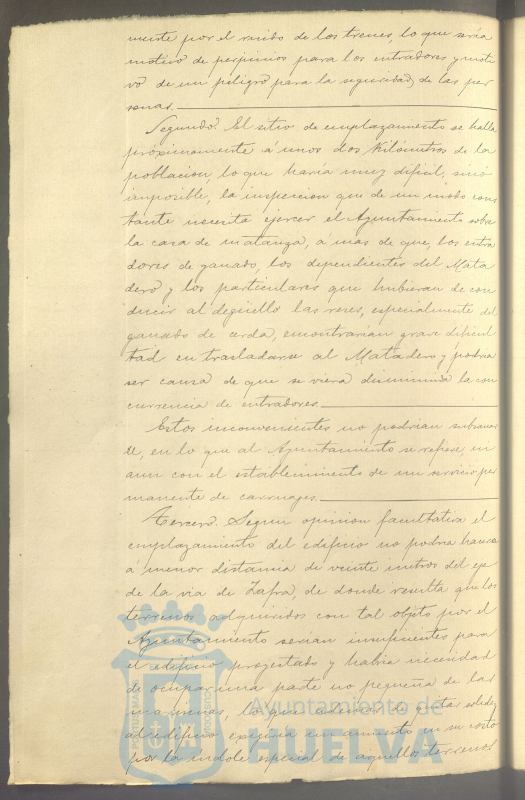 mente por el ruido de los trenes, lo que sería
motivo de perjuicios para los entradores y moti
vo de un peligro para la seguridad de las per
sonas.
Segundo. El sitio de emplazamiento se halla
próximamente á unos dos Kilómetros de la
poblacion, lo que haría muy dificil, sinó
imposible, la inspeccion que de un modo cons
tante necesita ejercer el Ayuntamiento sobre
la casa de matanza, á mas de que, los entra
dores de ganado, los dependientes del Mata
dero y los particulares que hubieran de con
ducir al degüello las reses, especialmente del
ganado de cerda, encontrarían grave dificul
tad en trasladarse al Matadero y podria
ser causa de que se viera disminuida la con
currencia de entradores.
Estos inconvenientes no podrian subsanar
se, en lo que al Ayuntamiento se refiere, ni
aun con el establecimiento de un servicio per
manente de carruages.
Tercero. Segun opinion facultativa el
emplazamiento del edificio no podria hacerse
á menor distancia de veinte metros del eje
de la via de Zafra, de donde resulta que los
terrenos adquiridos con tal objeto por el
Ayuntamiento serian insuficientes para
el edificio proyectado y habia necesidad
de ocupar una parte no pequeña de las
marismas, lo que además de restar solidez
al edificio exigiria un aumento en su costo
por la índole especial de aquellos terrenos
Ayuntamiento de
HUELVA